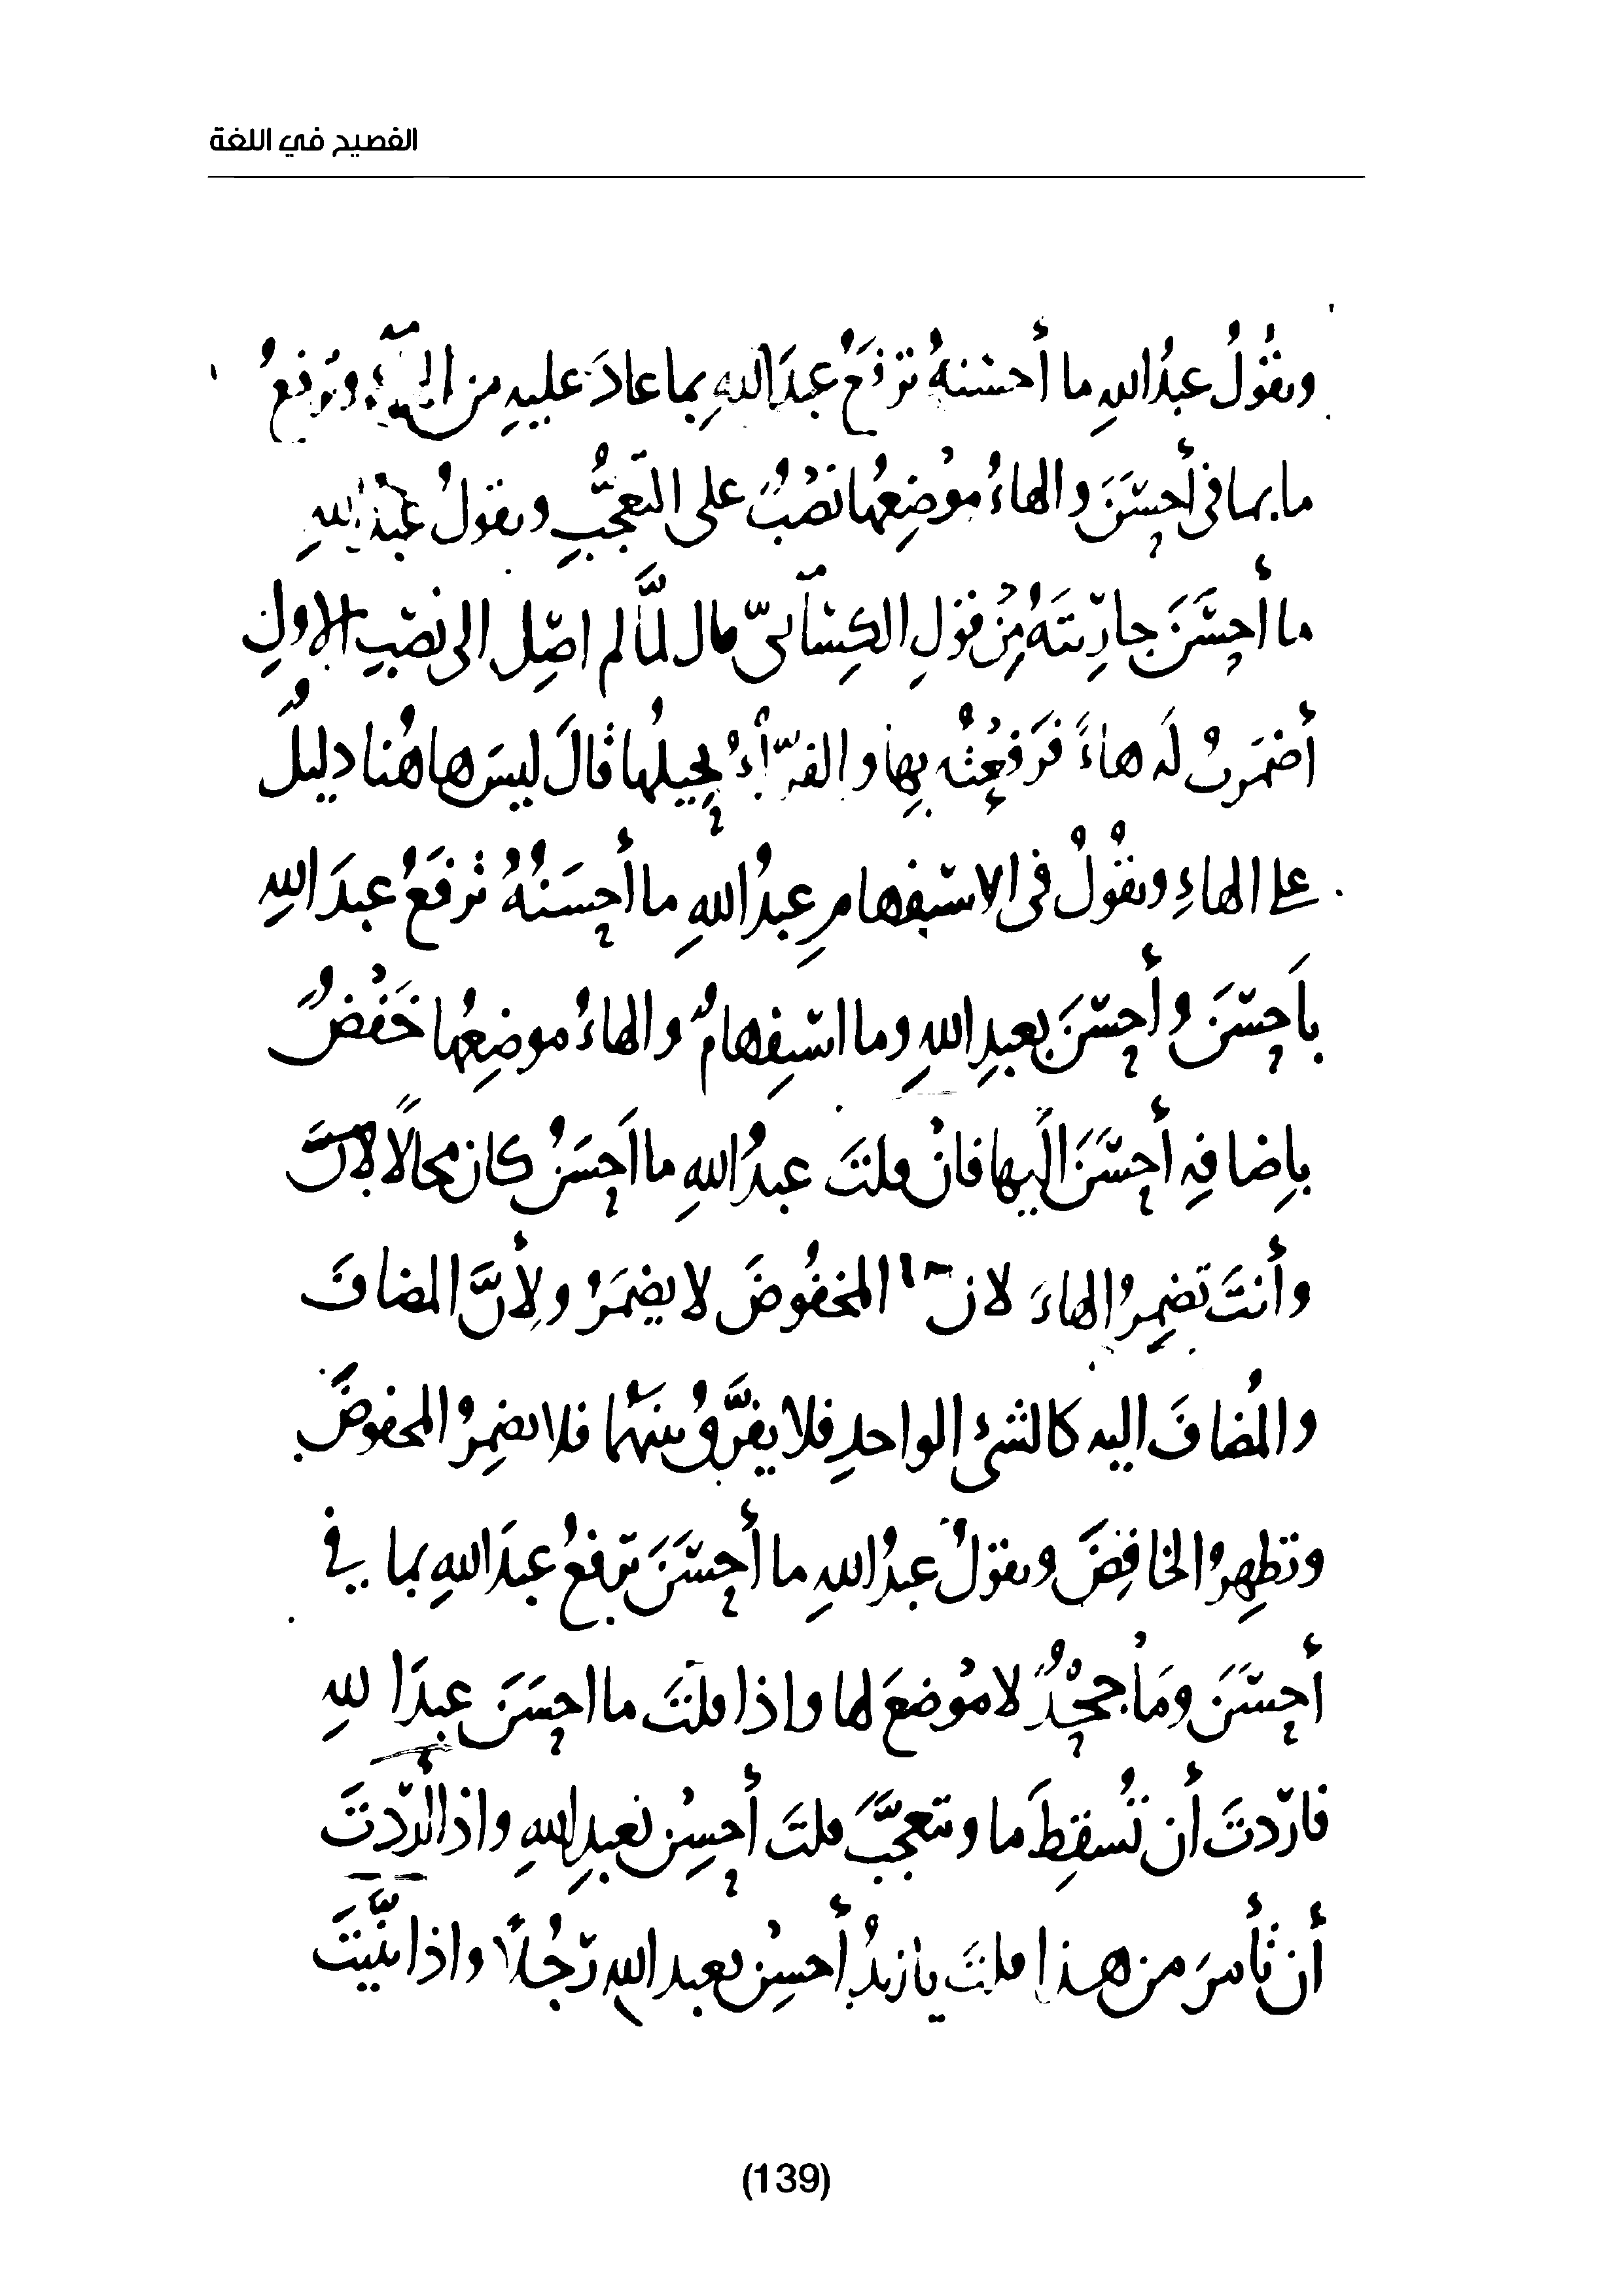 الفصيح في اللغة
وتقُولُ عبدُ اللهِ ما أحسَنهُ تَرفَعُ عبدَ اللهِ بما عادَ عليهِ من الهآءِ وتَرفعُ
ما بما في أحسَنَ والهاءُ موْضِعُها نَصْبٌ على التعجُّبِ وتقولُ عبدُ اللهِ
ما أحسَنَ جارِيتَهُ مِنْ قَوْلِ الكِسَآئىّ قال لمَّا لم اصِل الى نصْبِ الاولِ
أضمَرتُ لَه هاءً فرَفعْتُه بها والفرّآءُ يُحِيلُها قالَ ليسَ هاهُنا دليلٌ
على الهاءِ وتقُولُ في الاستفهامِ عبدُ اللهِ ما أحسَنُهُ تَرفَعُ عبدَ اللهِ
بأحسَنَ وأحسَنَ بعبدِ اللهِ وما استِفهامٌ والهاءُ موضِعُها خَفْضٌ
بإضافةِ أحسَنَ إليها فانْ قلتَ عبدُ اللهِ ما أحسَنُ كان محالًا لأنَّ
وأنتَ تضمِرُ الهاءَ لان المخفُوضَ لا يضمَرُ ولأنَّ المضافَ
والمُضافَ اليه كالشىءِ الواحدِ فلا يفرَّقُ بينهُما فلا تضمِرُ المخفوضَ
وتظهِرُ الخافِضَ وتقولُ عبدُ اللهِ ما أحسَنَ ترفعُ عبدَ اللهِ بما في
أحسَنَ ومَا جحْدٌ لا موْضعَ لها واذا قلتَ ما احسَنَ عبدَ اللهِ
فارَدتَ أن تُسقِطَ ما وتتعجَّبَ قلتَ أحسِنْ بعبدِ اللهِ واذا أردتَ
أن تأمرَ من هذا قلتَ يا زيدُ أحسِنْ بعبد اللهِ رَجُلًا واذا ثنَّيتَ
(139)